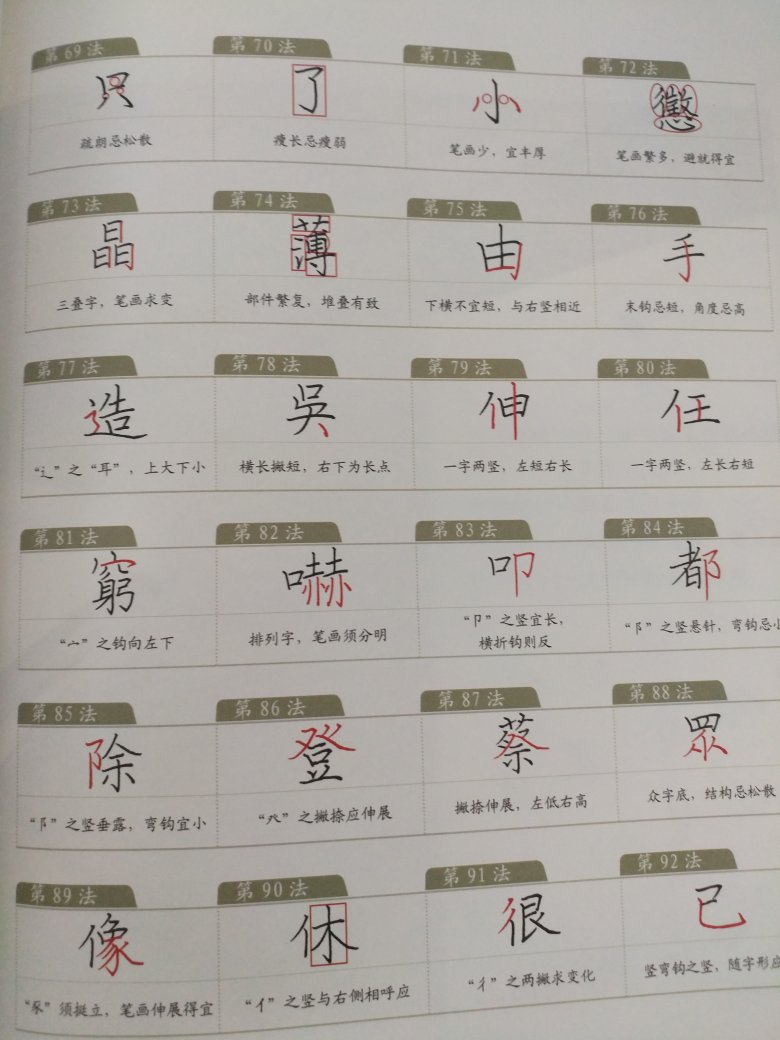 第69法 第70法 第71法 第72法
只 了 小 懲
疏朗忌松散 瘦长忌瘦弱 笔画少，宜丰厚 笔画繁多，避就得宜
第73法 第74法 第75法 第76法
晶 薄 由 手
三叠字，笔画求变 部件繁复，堆叠有致 下横不宜短，与右竖相近 末钩忌短，角度忌高
第77法 第78法 第79法 第80法
造 吳 伸 任
“辶”之“耳”，上大下小 横长撇短，右下为长点 一字两竖，左短右长 一字两竖，左长右短
第81法 第82法 第83法 第84法
窮 嚇 叩 都
“宀”之钩向左下 排列字，笔画须分明 “卩”之竖宜长， “阝”之竖悬针，弯钩忌小
横折钩则反
第85法 第86法 第87法 第88法
除 登 蔡 眾
“阝”之竖垂露，弯钩宜小 “癶”之撇捺应伸展 撇捺伸展，左低右高 众字底，结构忌松散
第89法 第90法 第91法 第92法
像 休 很 已
“豕”须挺立，笔画伸展得宜 “亻”之竖与右侧相呼应 “彳”之两撇求变化 竖弯钩之竖，随字形应